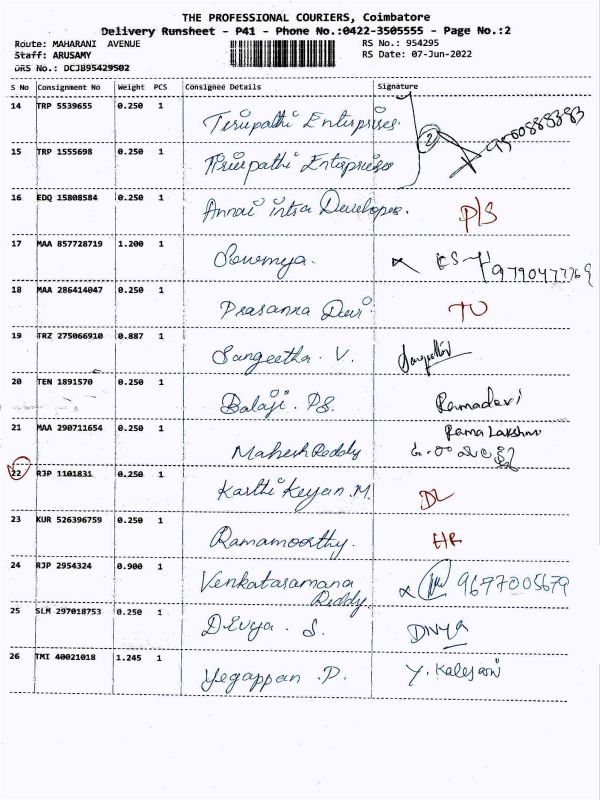 THE PROFESSIONAL COURIERS, Coimbatore
Delivery Runsheet - P41 - Phone No.:0422-3505555 - Page No.:2
Route: MAHARANI AVENUE RS No.: 954295
Staff: ARUSAMY RS Date: 07-Jun-2022
DRS No.: DCJB95429502
S No Consignment No Weight PCS Consignee Details Signature
14 TRP 5539655 0.250 1 Tirupathi Enterprises. 2
15 TRP 1555698 0.250 1 Tirupathi Enterprises
16 EDQ 15808584 0.250 1 Annai intra Developer. P/S
17 MAA 857728719 1.200 1 Sowmya.
18 MAA 286414047 0.250 1 Prasanna Devi
19 TRZ 275066910 0.887 1 Sangeetha . V.
20 TEN 1891570 0.250 1 Balaji . PS. Ramadevi
21 MAA 290711654 0.250 1 Mahesh Reddy Rama Lakshmi
22 RJP 1101831 0.250 1 Karthi Keyan .M. DL
23 KUR 526396759 0.250 1 Ramamoorthy. HR
24 RJP 2954324 0.900 1 Venkataramana 9677005679
Reddy.
25 SLM 297018753 0.250 1 Divya . S. DIVYA
26 TMI 40021018 1.245 1 Yegappan .P.